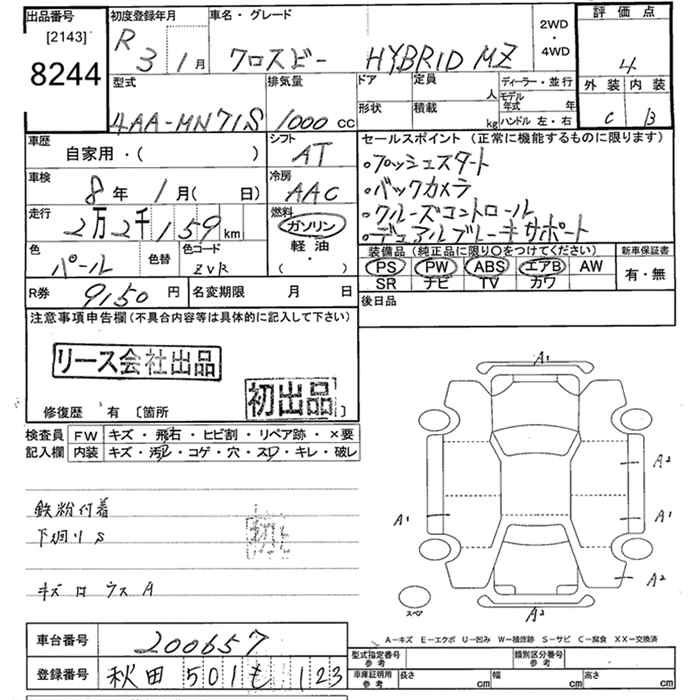 出品番号 初度登録年月 車名・グレード 2WD・4WD 評価点
[2143]
8244 R 3 1月 クロスビー HYBRID MZ 4
型式 排気量 ドア 定員 人 ディーラー・並行 外装 内装
4AA-MN71S 1000cc 形状 積載 kg モデル年式 年 ハンドル 左・右 C B
車歴 シフト セールスポイント(正常に機能するものに限ります)
自家用・( ) AT ・プッシュスタート
車検 冷房 ・バックカメラ
8年 1月( 日) AAC ・クルーズコントロール
走行 燃料 ・デュアルブレーキサポート
2万2千159km ガソリン
色 色替 色コード 軽油 装備品(純正品に限り〇をつけてください) 新車保証書
パール ZVR (・) PS PW ABS エアB AW 有・無
R券 9150円 名変期限 月 日 SR ナビ TV カワ
注意事項申告欄(不具合内容等は具体的に記入して下さい) 後日品
リース会社出品
初出品
修復歴 有 〔箇所 〕
検査員 FW キズ・飛石・ヒビ割・リペア跡・×要
記入欄 内装 キズ・汚レ・コゲ・穴・スレ・キレ・破レ
鉄粉付着
下廻りS
A1
A2
A1 A1
A2
A2
スペア
A-キズ E-エクボ U-凹み W-補修跡 S-サビ C-腐食 XX-交換済
車台番号 200657
型式指定番号参考 類別区分番号参考
登録番号 秋田 501 も 123
車庫証明用参考 長さ cm 幅 cm 高さ cm